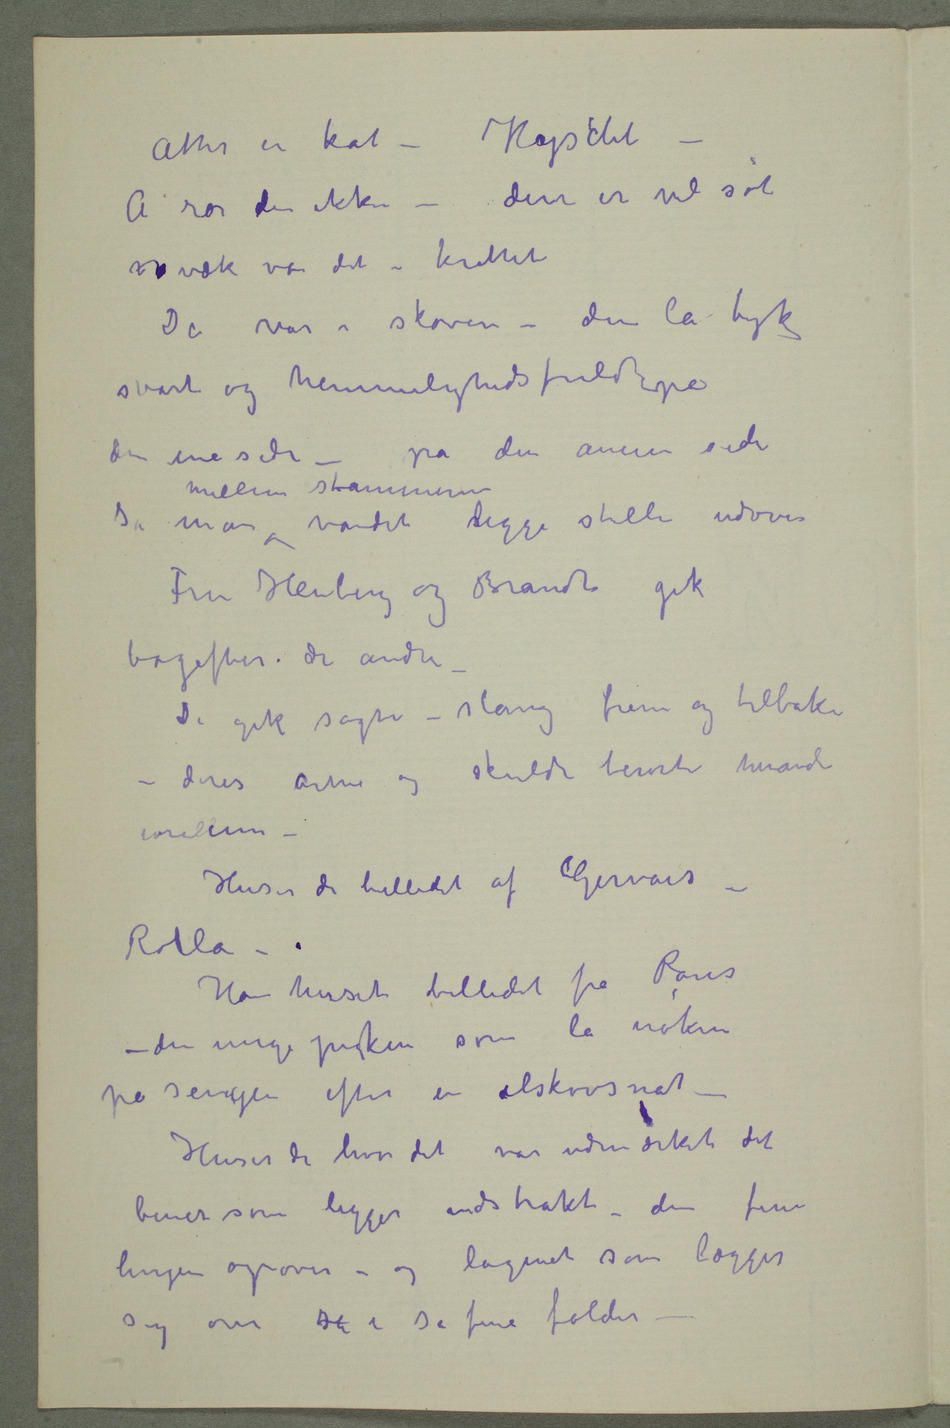 Atter en kat – Hysch! –
Å rør den ikke – den er vel søt
væk var det i krattet
De var i skoven – den lå tyk
svart og hemmelighedsfuld på
den ene side – på den anden side
mellem stammerne
Så man vandet ligge stille udover
Fru Heiberg og Brandt gik
bagefter de andre –
De gik sagte – slang frem og tilbake
– deres arme og skuldre berørte hinanden
imellem –
Husker de billedet af Gervais –
Rolla –
Han husket billedet fra Paris
– den unge piken som lå nøken
på sengen efter en elskovsnat –
Husker de hvor det var udmærket det
benet som ligger udstrakt – den fine
lingen opover – og lagenet som lægger
sig over så i så fine folder –